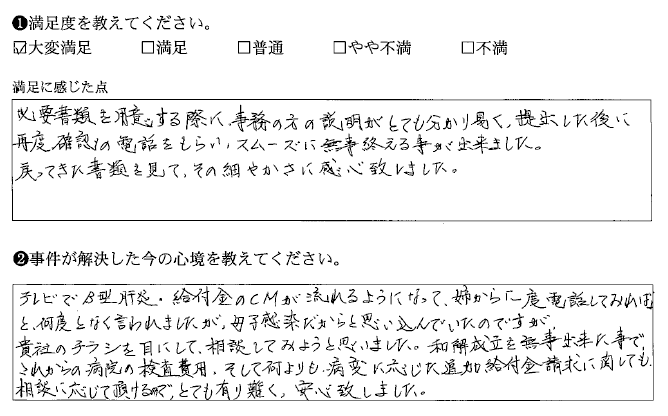 ❶満足度を教えてください。
☑大変満足 □満足 □普通 □やや不満 □不満
満足に感じた点
必要書類を用意する際に、事務の方の説明がとても分かり易く、提出した後に
再度確認の電話をもらい、スムーズに無事終える事が出来ました。
戻ってきた書類を見て、その細やかさに感心致しました。
❷事件が解決した今の心境を教えてください。
テレビでB型肝炎・給付金のCMが流れるようになって、姉から一度電話してみれば
と、何度となく言われましたが、母子感染だからと思い込んでいたのですが
貴社のチラシを目にして、相談してみようと思いました。和解成立を無事出来た事で、
これからの病院の検査費用、そして何よりも病変に応じた追加給付金請求に関しても
相談に応じて頂けるので、とても有り難く、安心致しました。